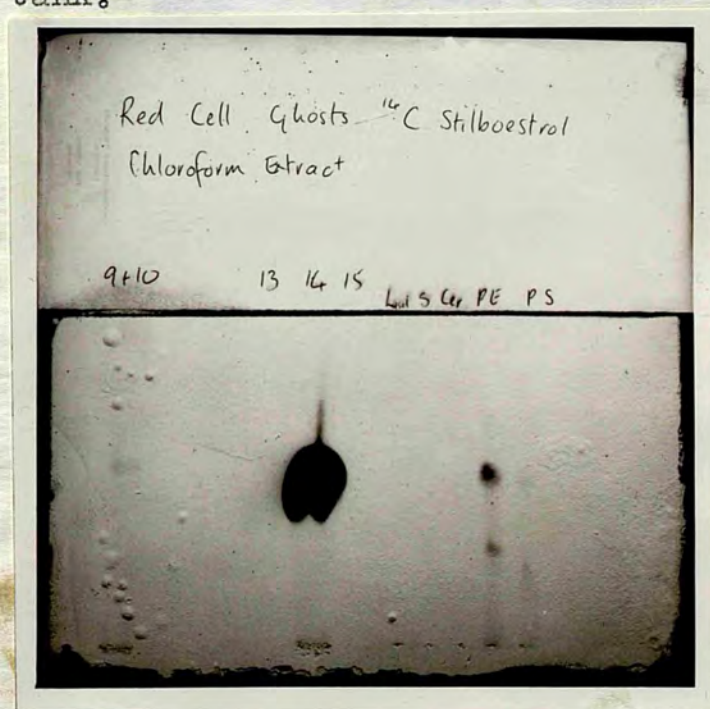 Red Cell Ghosts ¹⁴C Stilboestrol
Chloroform Extract
9+10 13 14 15 S Cer PE PS